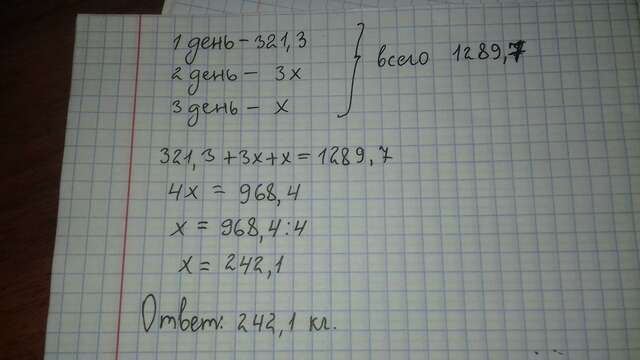 1 день – 321,3
2 день – 3x
3 день – x
всего 1289,7
321,3 + 3x + x = 1289,7
4x = 968,4
x = 968,4 : 4
x = 242,1
Ответ: 242,1 кг.